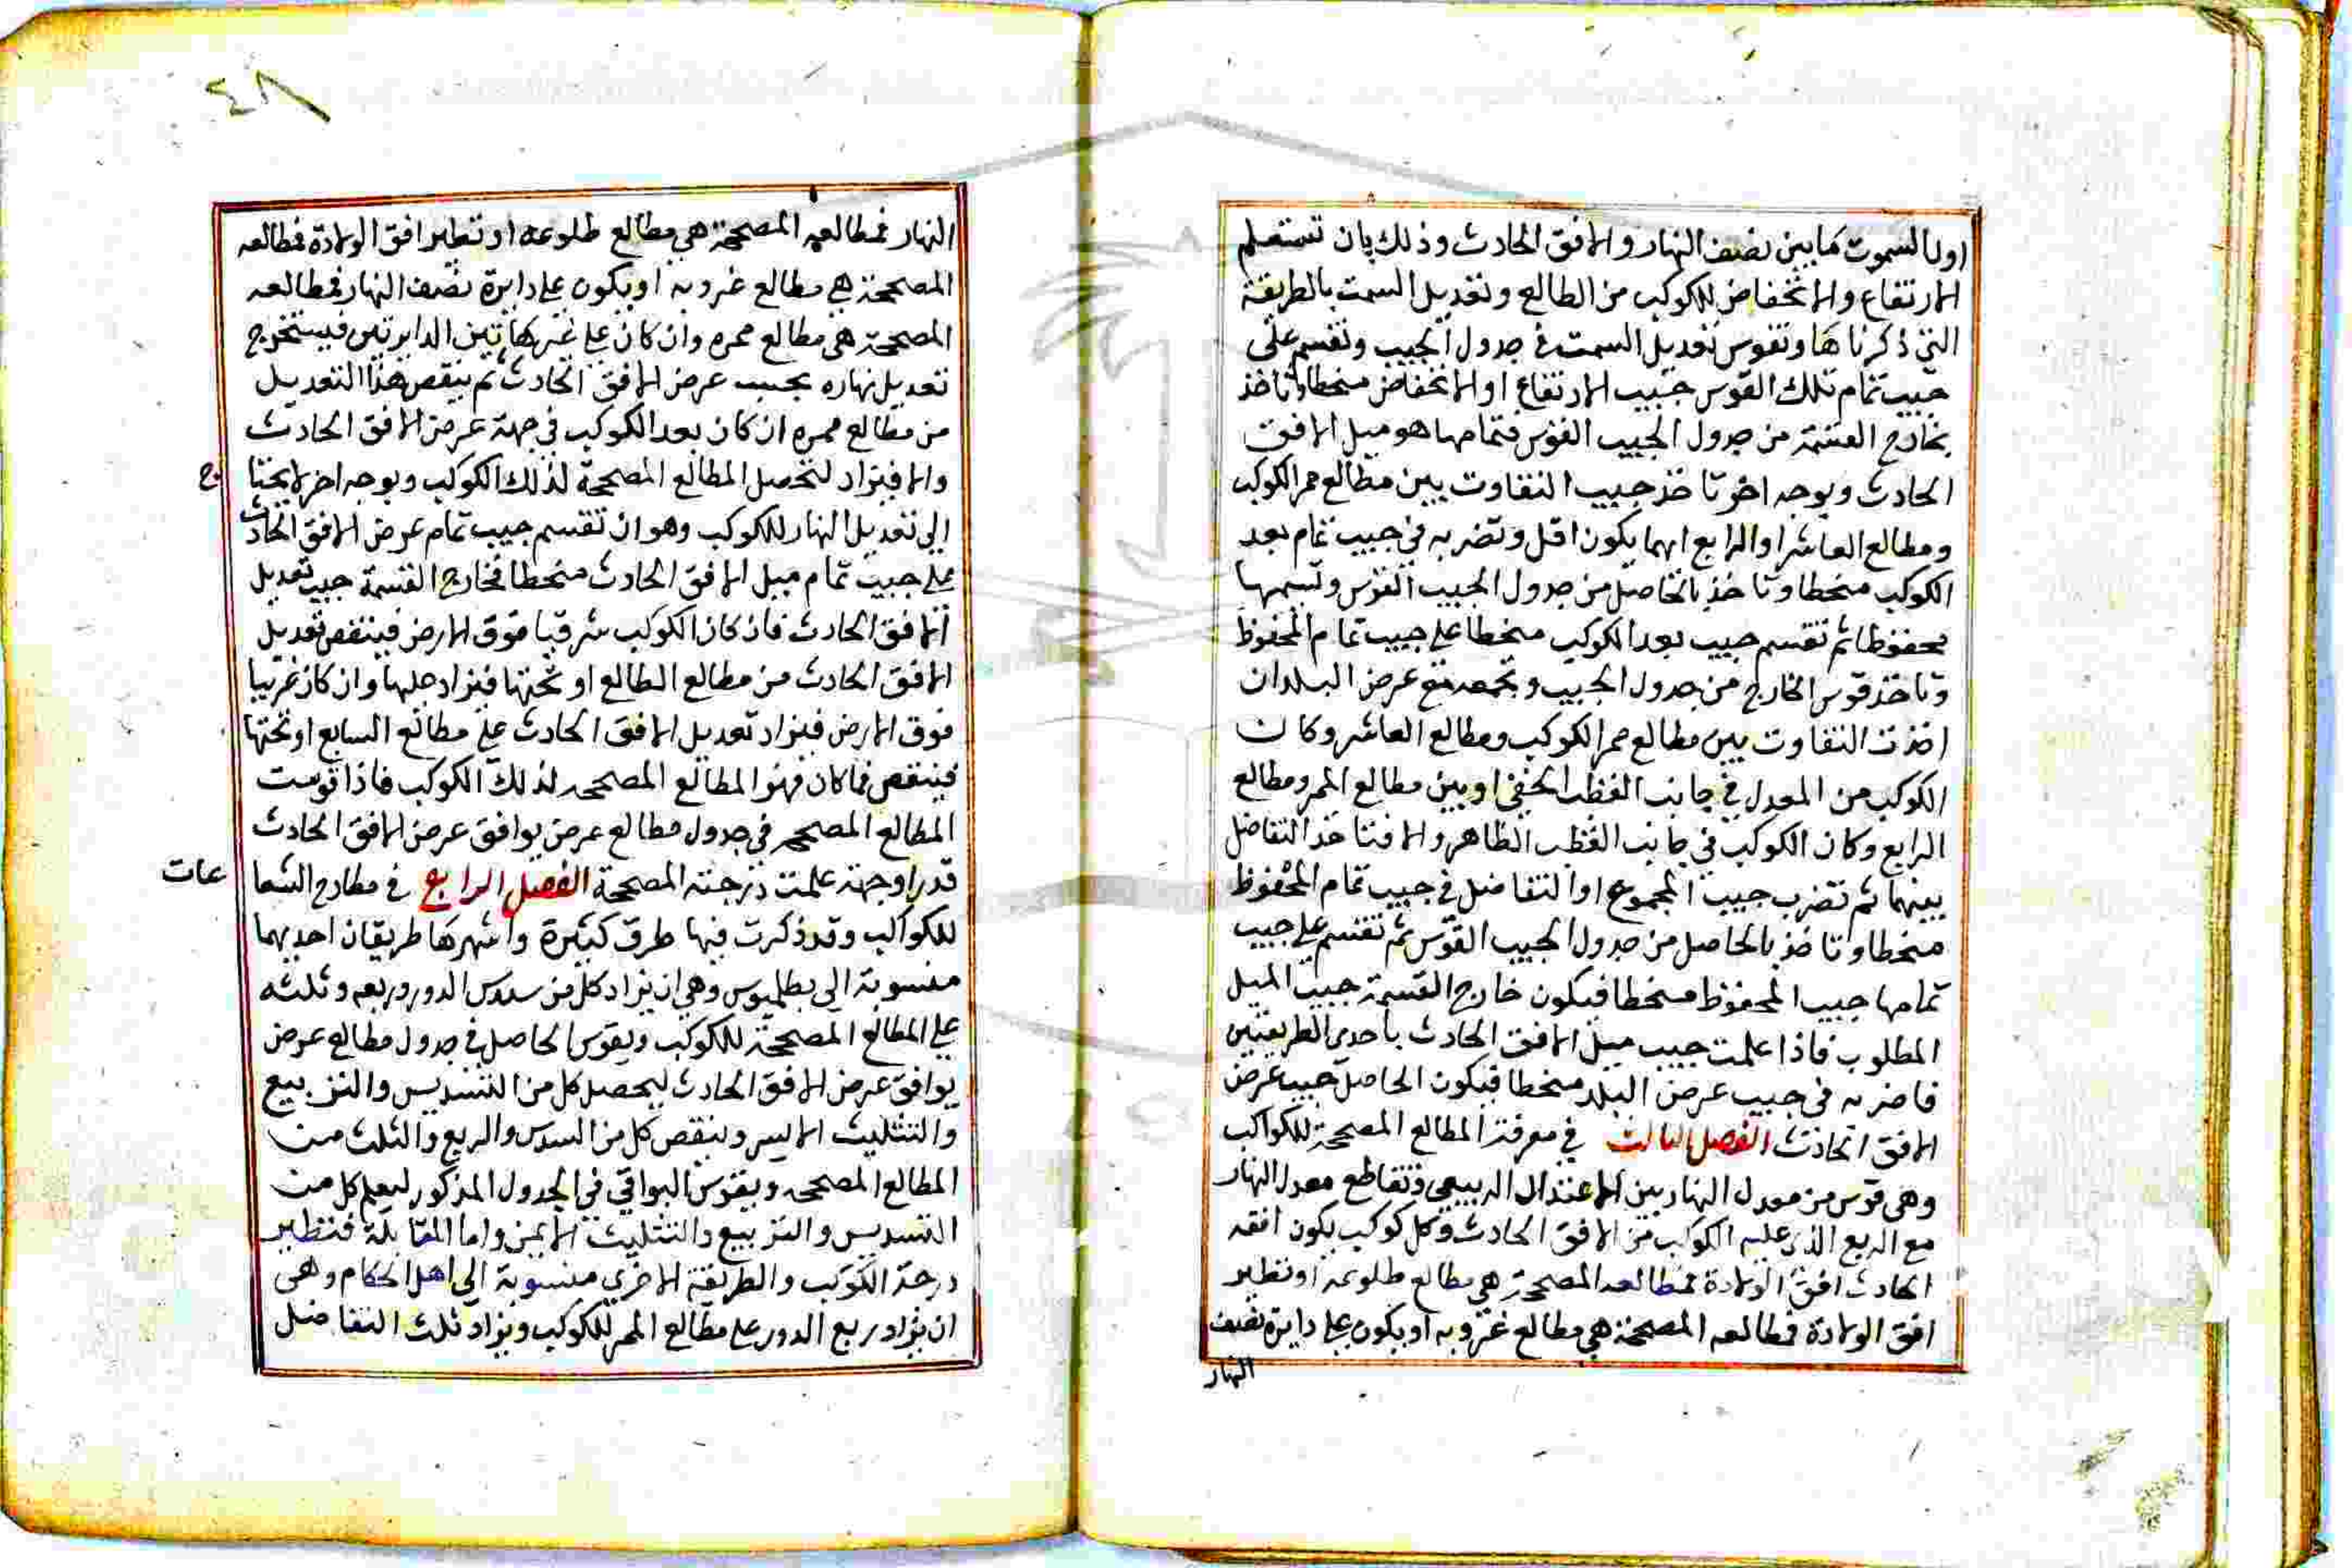 اولا السموت كما بين نصف النهار والافق الحادث وذلك بان تستعلم
الارتفاع والانخفاض للكوكب من الطالع وتعديل السمت بالطريقة
التي ذكرناها وتقوس تعديل السمت في جدول الجيب وتقسم على
جيب تمام تلك القوس جيب الارتفاع او الانخفاض منحطا وتاخذ
بخارج القسمة من جدول الجيب القوس فتمامها هو ميل الافق
الحادث وبوجه اخر تاخذ جيب التفاوت بين مطالع ممر الكوكب
ومطالع العاشر او الرابع ايهما يكون اقل وتضربه في جيب تمام بعد
الكوكب منحطا وتاخذ بالحاصل من جدول الجيب القوس وتسميها
محفوظا ثم تقسم جيب بعد الكوكب منحطا على جيب تمام المحفوظ
وتاخذ قوس الخارج من جدول الجيب وتجمعه مع عرض البلد ان
اخذت التفاوت بين مطالع ممر الكوكب ومطالع العاشر وكان
الكوكب من المعدل في جانب القطب الخفي او بين مطالع الممر ومطالع
الرابع وكان الكوكب في جانب القطب الظاهر والا فتاخذ التفاضل
بينهما ثم تضرب جيب المجموع او التفاضل في جيب تمام المحفوظ
منحطا وتاخذ بالحاصل من جدول الجيب القوس ثم تقسم على جيب
تمامها جيب المحفوظ منحطا فيكون خارج القسمة جيب الميل
المطلوب فاذا علمت جيب ميل الافق الحادث باحدى الطريقتين
فاضربه في جيب عرض البلد منحطا فيكون الحاصل جيب عرض
الافق الحادث الفصل الثالث في معرفة المطالع المصححة للكواكب
وهي قوس من معدل النهار بين الاعتدال الربيعي وتقاطع معدل النهار
مع الربع الذي عليه الكوكب من الافق الحادث وكل كوكب يكون افقه
الحادث افق الولادة فمطالعه المصححة هي مطالع طلوعه او نظير
افق الولادة فمطالعه المصححة هي مطالع غروبه او يكون على دايرة نصف
النهار
٤٨
النهار فمطالعه المصححة هي مطالع طلوعه او نظير افق الولادة فمطالعه
المصححة هي مطالع غروبه او يكون على دايرة نصف النهار فمطالعه
المصححة هي مطالع ممره وان كان على غير هاتين الدايرتين فيستخرج
تعديل نهاره بحسب عرض الافق الحادث ثم ينقص هذا التعديل
من مطالع ممره ان كان بعد الكوكب في جهة عرض الافق الحادث
والا فيزاد لتحصل المطالع المصححة لذلك الكوكب وبوجه اخر لا يحتاج
الى تعديل النهار للكوكب وهو ان تقسم جيب تمام عرض الافق الحادث
على جيب تمام ميل الافق الحادث منحطا فخارج القسمة جيب تعديل
الافق الحادث فان كان الكوكب شرقيا فوق الارض فينقص تعديل
الافق الحادث من مطالع الطالع او تحتها فيزاد عليها وان كان غربيا
فوق الارض فيزاد تعديل الافق الحادث على مطالع السابع او تحتها
فينقص فما كان فهو المطالع المصححه لذلك الكوكب فاذا قوست
المطالع المصححه في جدول مطالع عرض يوافق عرض الافق الحادث
قدرا وجهة علمت درجته المصححة الفصل الرابع في مطارح الشعاعات
للكواكب وقد ذكرت فيها طرق كثيرة واشهرها طريقان احديهما
منسوبة الى بطلميوس وهي ان يزاد كل من سدس الدور وربعه وثلثه
على المطالع المصححة للكوكب ويقوس الحاصل في جدول مطالع عرض
يوافق عرض الافق الحادث ليحصل كل من التسديس والتربيع
والتثليث الايسر وينقص كل من السدس والربع والثلث من
المطالع المصححه ويقوس البواقي في الجدول المذكور ليعلم كل من
التسديس والتربيع والتثليث الايمن واما المقابلة فنظير
درجة الكوكب والطريقة الاخرى منسوبة الى اهل الحكام وهي
ان يزاد ربع الدور على مطالع الممر للكوكب ويزاد ثلث التفاضل